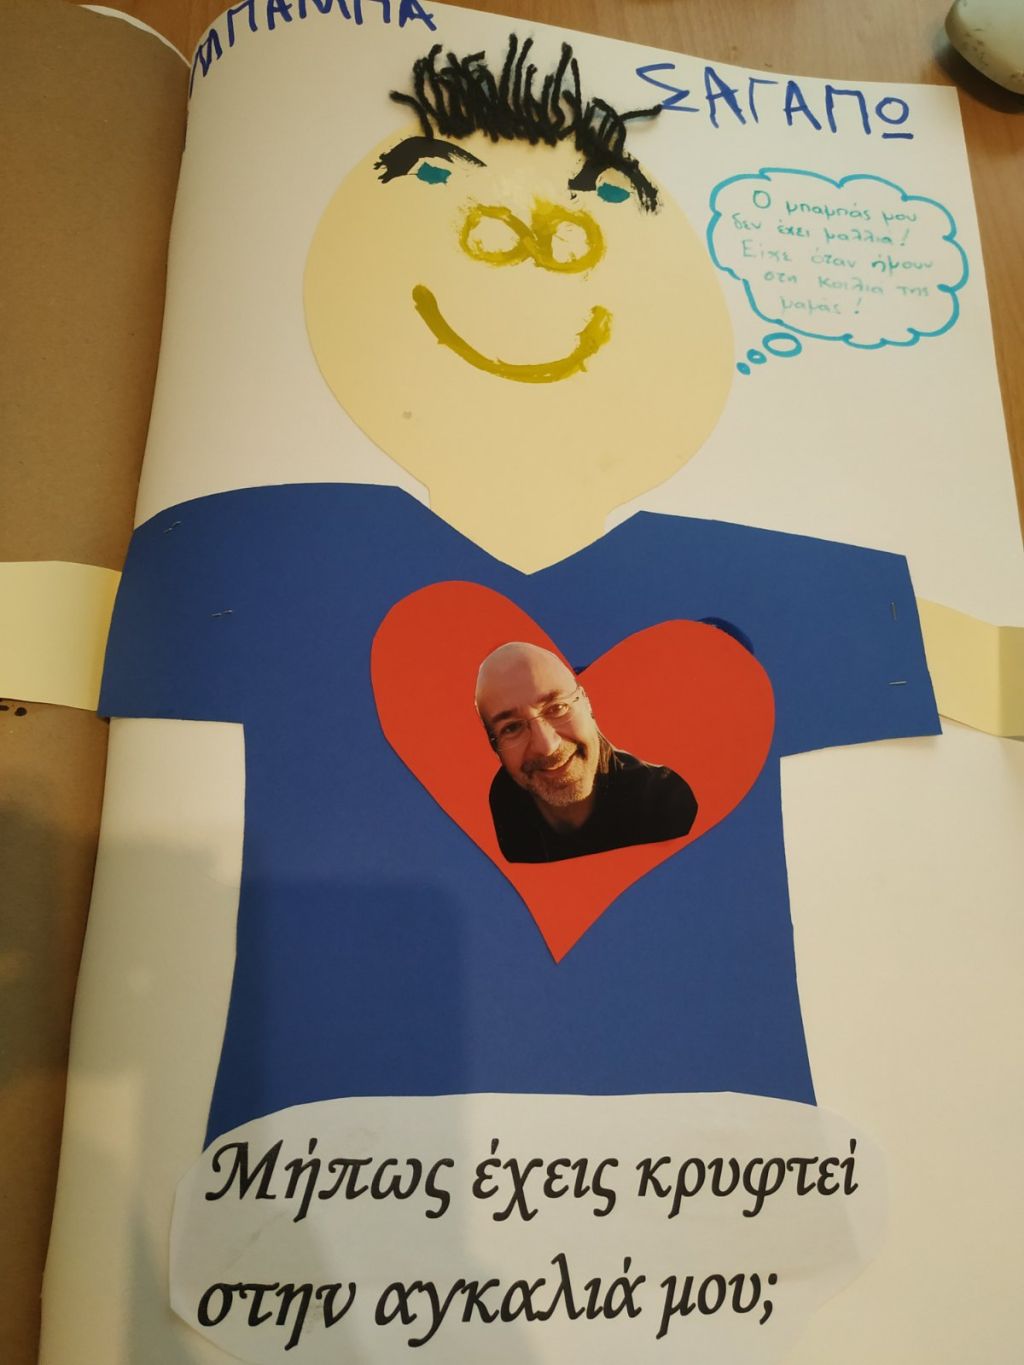 ΜΠΑΜΠΑ
ΣΑΓΑΠΩ
Ο μπαμπάς μου
δεν έχει μαλλιά!
Είχε όταν ήμουν
στη κοιλιά της
μαμάς!
Μήπως έχεις κρυφτεί
στην αγκαλιά μου;